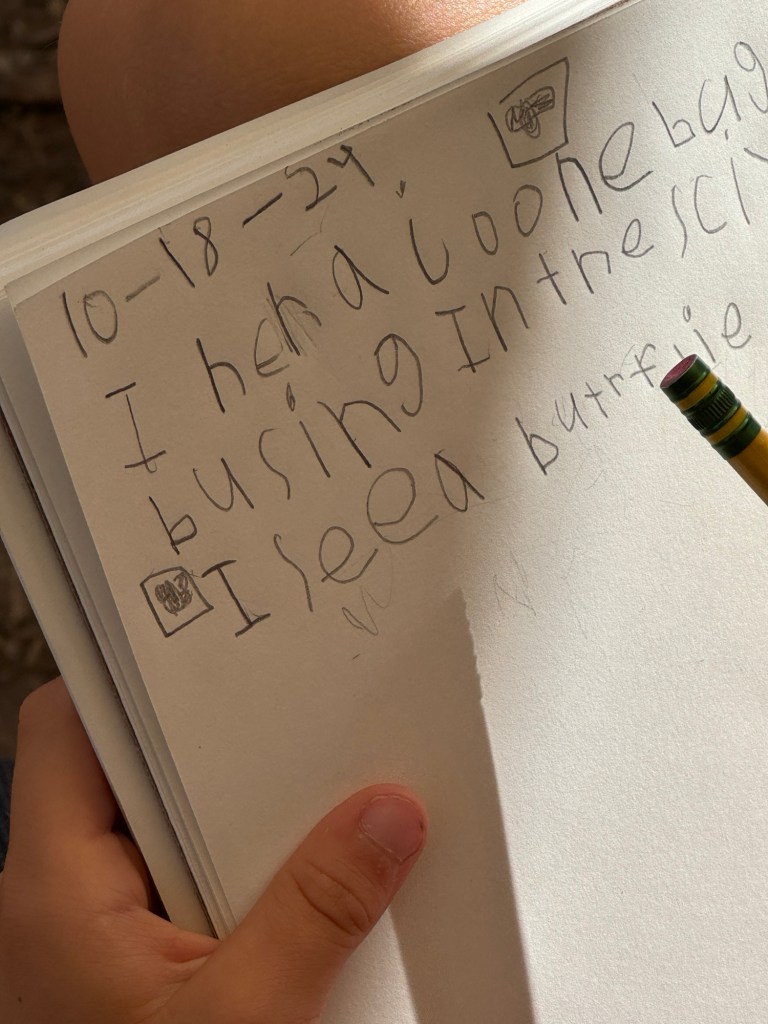 10-18-24
I heh a loone bug
busing In the sci
I see a butrflie